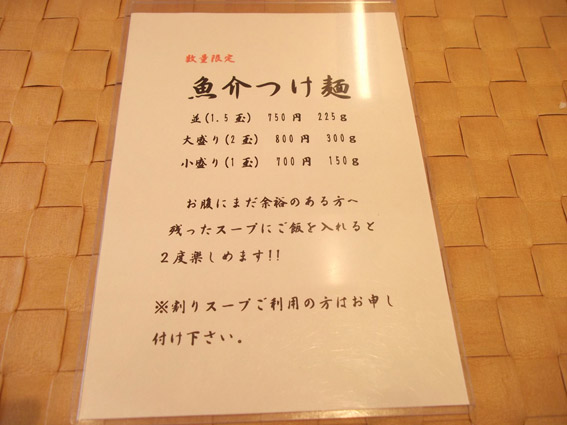 数量限定
魚介つけ麺
並(1.5玉) 750円 225g
大盛り(2玉) 800円 300g
小盛り(1玉) 700円 150g
お腹にまだ余裕のある方へ
残ったスープにご飯を入れると
2度楽しめます!!
※割りスープご利用の方はお申し
付け下さい。